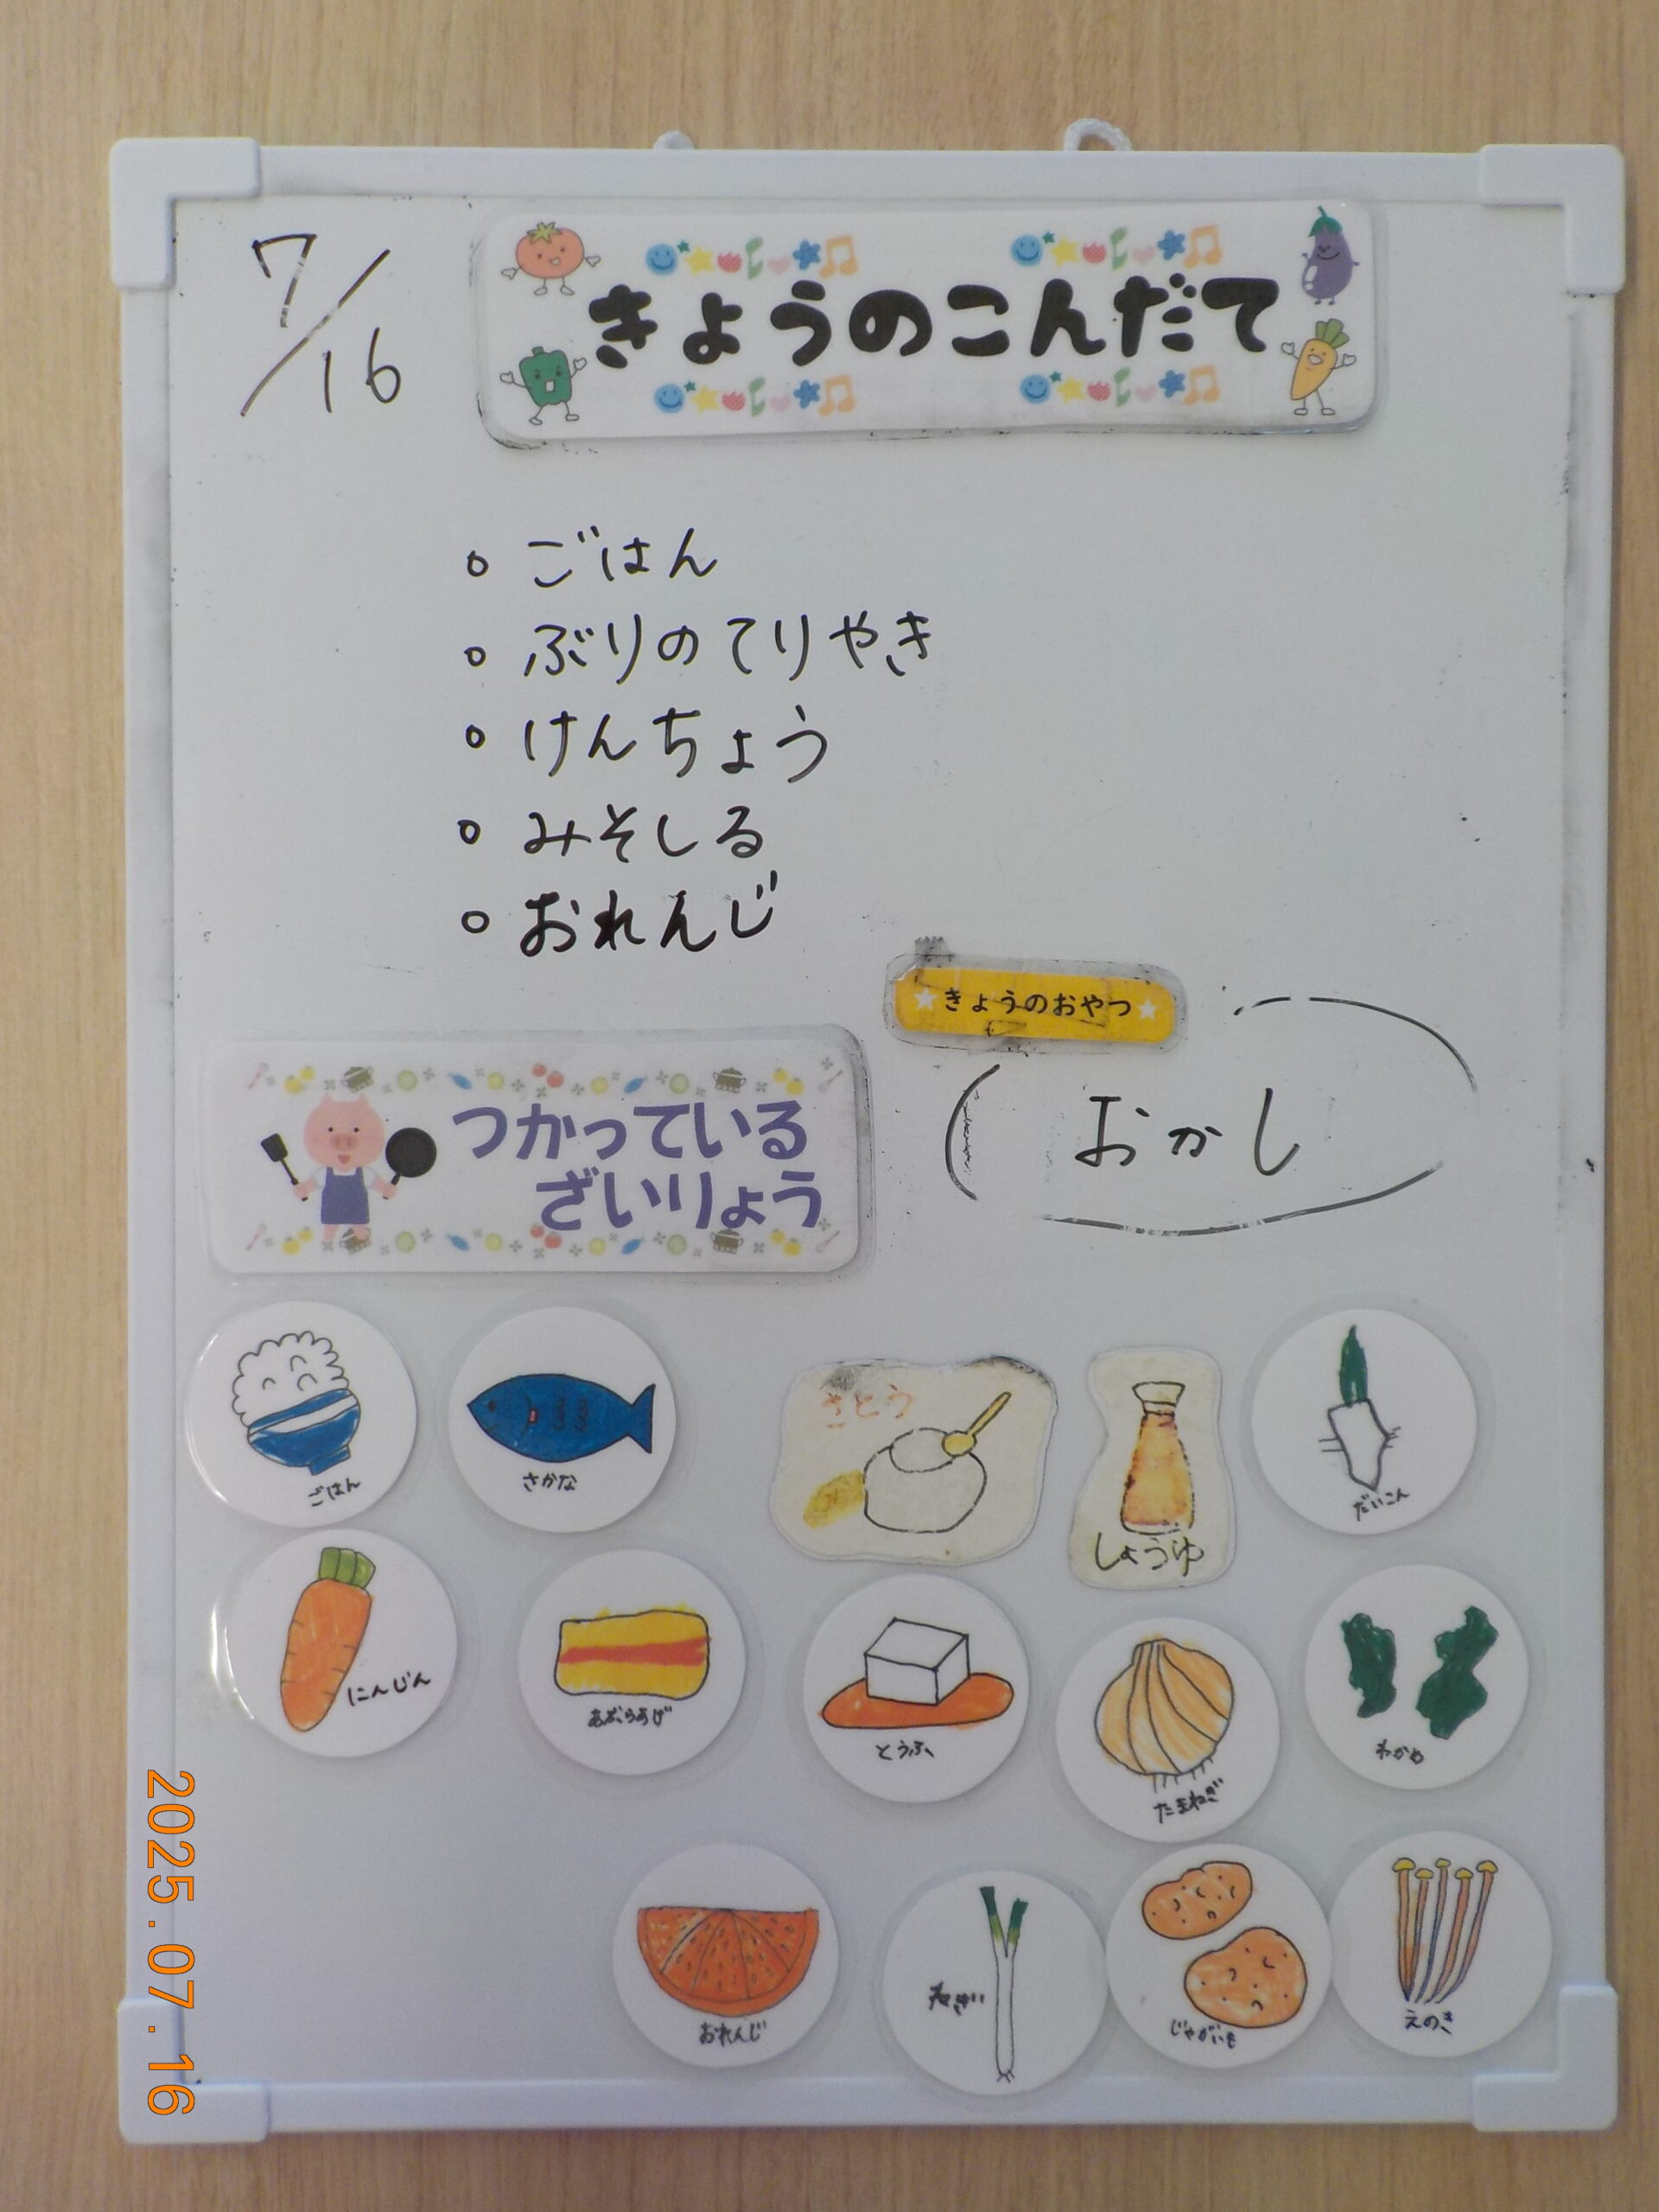 7/16
きょうのこんだて
○ ごはん
○ ぶりのてりやき
○ けんちょう
○ みそしる
○ おれんじ
★きょうのおやつ★
おかし
つかっている
ざいりょう
ごはん
さかな
さとう
しょうゆ
だいこん
にんじん
あぶらあげ
とうふ
たまねぎ
わかめ
おれんじ
ねぎ
じゃがいも
えのき
2025.07.16